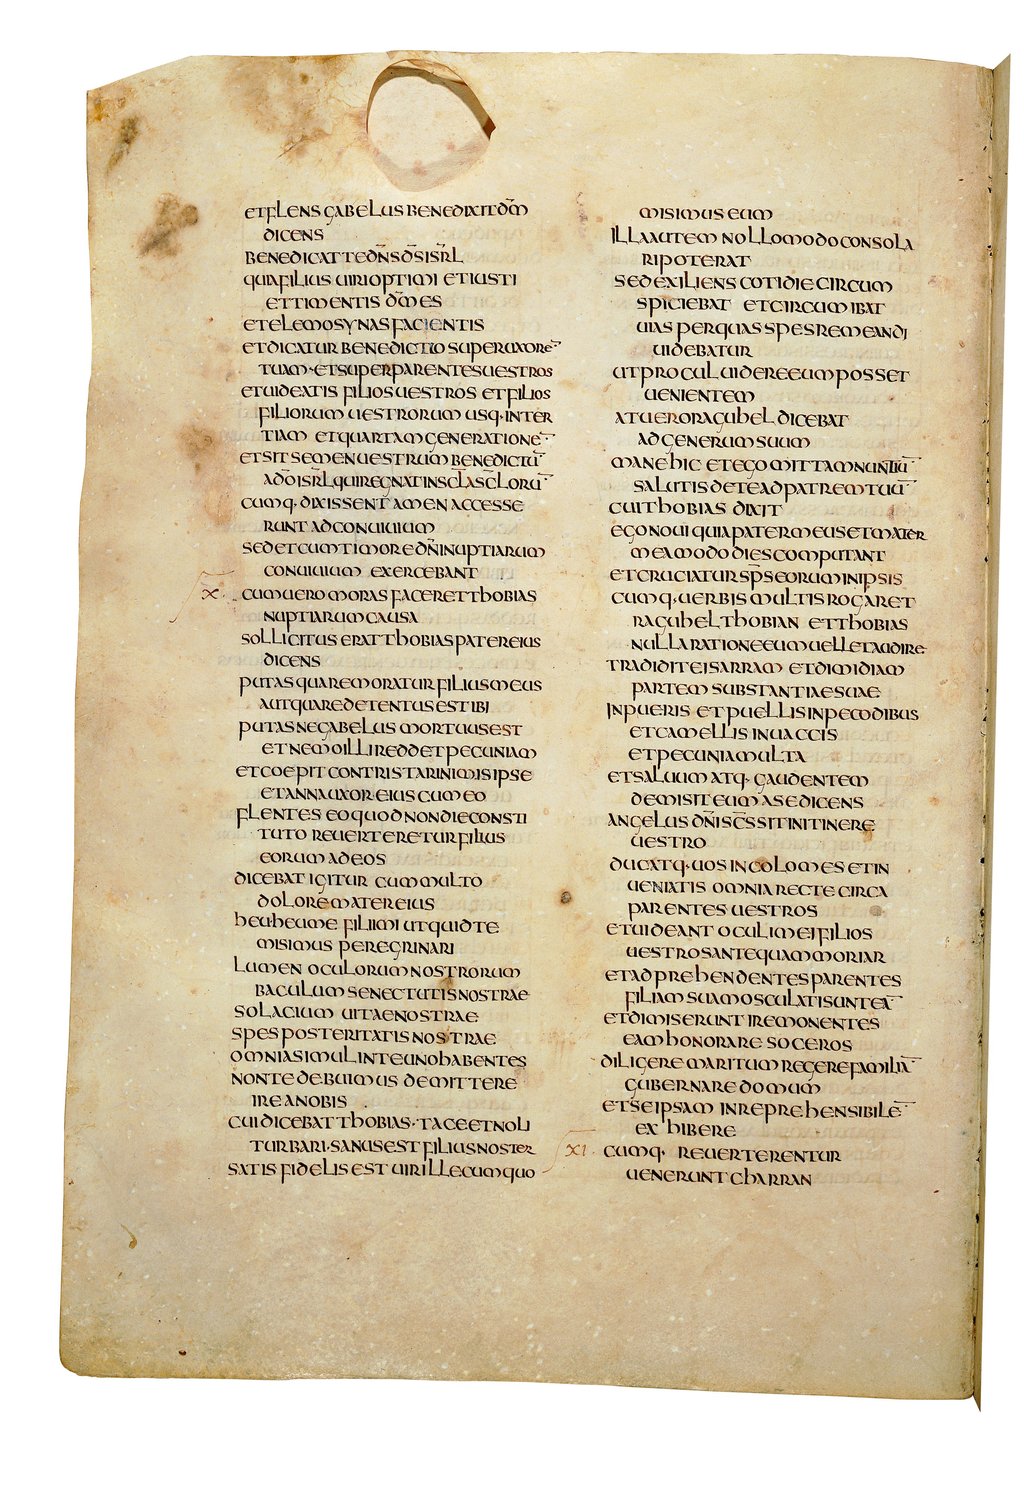 ET FLENS GABELUS BENEDIXIT DM̄
DICENS
BENEDICAT TE DN̄S DS̄ ISRL̄
QUIA FILIUS UIRI OPTIMI ET IUSTI
ET TIMENTIS DM̄ ES
ET ELEMOSYNAS FACIENTIS
ET DICATUR BENEDICTIO SUPER UXORE¯
TUAM · ET SUPER PARENTES UESTROS
ET UIDEATIS FILIOS UESTROS ET FILIOS
FILIORUM UESTRORUM USQ· IN TER
TIAM ET QUARTAM GENERATIONE¯
ET SIT SEMEN UESTRUM BENEDICTU¯
A DŌ ISRL̄ QUI REGNAT IN SCLA SCLORU¯
CUMQ· DIXISSENT AMEN ACCESSE
RUNT AD CONUIUIUM
SED ET CUM TIMORE DNĪ NUPTIARUM
CONUIUIUM EXERCEBANT
X · CUM UERO MORAS FACERET THOBIAS
NUPTIARUM CAUSA
SOLLICITUS ERAT THOBIAS PATER EIUS
DICENS
PUTAS QUARE MORATUR FILIUS MEUS
AUT QUARE DETENTUS EST IBI
PUTAS NE GABELUS MORTUUS EST
ET NEMO ILLI REDDET PECUNIAM
ET COEPIT CONTRISTARI NIMIS IPSE
ET ANNA UXOR EIUS CUM EO
FLENTES EO QUOD NON DIE CONSTI
TUTO REUERTERETUR FILIUS
EORUM AD EOS
DICEBAT IGITUR CUM MULTO
DOLORE MATER EIUS
HEU· HEU ME FILI MI UT QUID TE
MISIMUS PEREGRINARI
LUMEN OCULORUM NOSTRORUM
BACULUM SENECTUTIS NOSTRAE
SOLACIUM UITAE NOSTRAE
SPES POSTERITATIS NOSTRAE
OMNIA SIMUL IN TE UNO HABENTES
NON TE DEBUIMUS DEMITTERE
IRE A NOBIS
CUI DICEBAT THOBIAS · TACE ET NOLI
TURBARI · SANUS EST FILIUS NOSTER
SATIS FIDELIS EST UIR ILLE CUM QUO
MISIMUS EUM
ILLA AUTEM NOLLO MODO CONSOLA
RI POTERAT
SED EXILIENS COTIDIE CIRCUM
SPICIEBAT ET CIRCUMIBAT
UIAS PER QUAS SPES REMEANDI
UIDEBATUR
UT PROCUL UIDERE EUM POSSET
UENIENTEM
AT UERO RAGUHEL DICEBAT
AD GENERUM SUUM
MANE HIC ET EGO MITTAM NUNTIU¯
SALUTIS DE TE AD PATREM TUU¯
CUI THOBIAS DIXIT
EGO NOUI QUIA PATER MEUS ET MATER
MEA MODO DIES COMPUTANT
ET CRUCIATUR SPS̄ EORUM IN IPSIS
CUMQ· UERBIS MULTIS ROGARET
RAGUHEL THOBIAN ET THOBIAS
NULLA RATIONE EUM UELLET AUDIRE
TRADIDIT EI SARRAM ET DIMIDIAM
PARTEM SUBSTANTIAE SUAE
IN PUERIS ET PUELLIS IN PECODIBUS
ET CAMELLIS IN UACCIS
ET PECUNIA MULTA
ET SALUUM ATQ· GAUDENTEM
DEMISIT EUM A SE DICENS
ANGELUS DNĪ SCS̄ SIT IN ITINERE
UESTRO
DUCATQ· UOS INCOLOMES ET IN
UENIATIS OMNIA RECTE CIRCA
PARENTES UESTROS
ET UIDEANT OCULI MEI FILIOS
UESTROS ANTEQUAM MORIAR
ET ADPREHENDENTES PARENTES
FILIAM SUAM OSCULATI SUNT EA¯
ET DIMISERUNT IRE MONENTES
EAM HONORARE SOCEROS
DILIGERE MARITUM REGERE FAMILIA¯
GUBERNARE DOMUM
ET SE IPSAM INREPREHENSIBILE¯
EXHIBERE
XI · CUMQ· REUERTERENTUR
UENERUNT CHARRAN